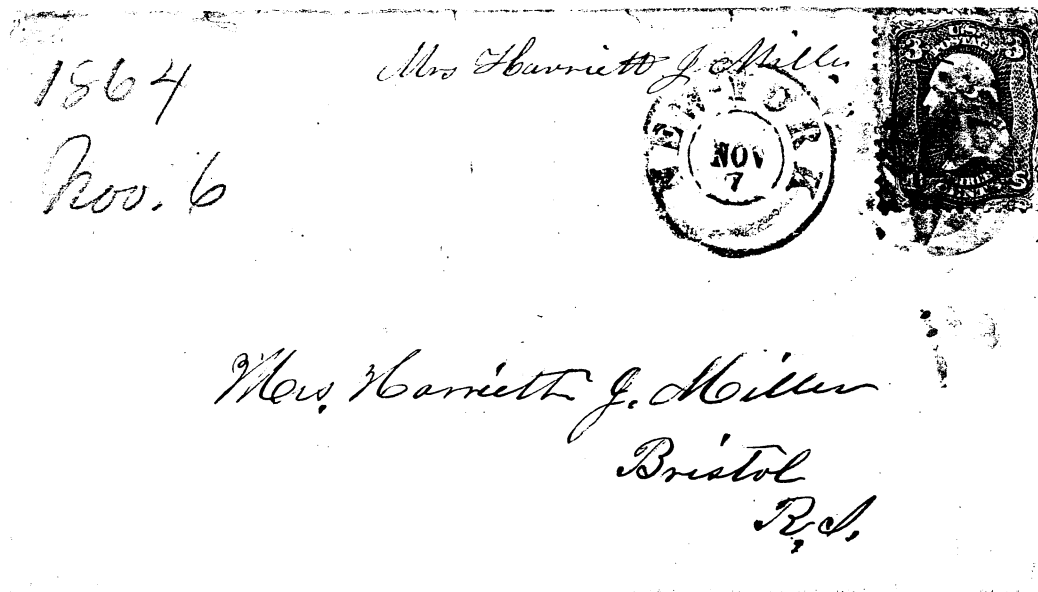 1864
Nov. 6
Mrs Harriett J Miller
NEW YORK
NOV
7
U.S.
3 3
Mrs. Harriett J. Miller
Bristol
R.I.